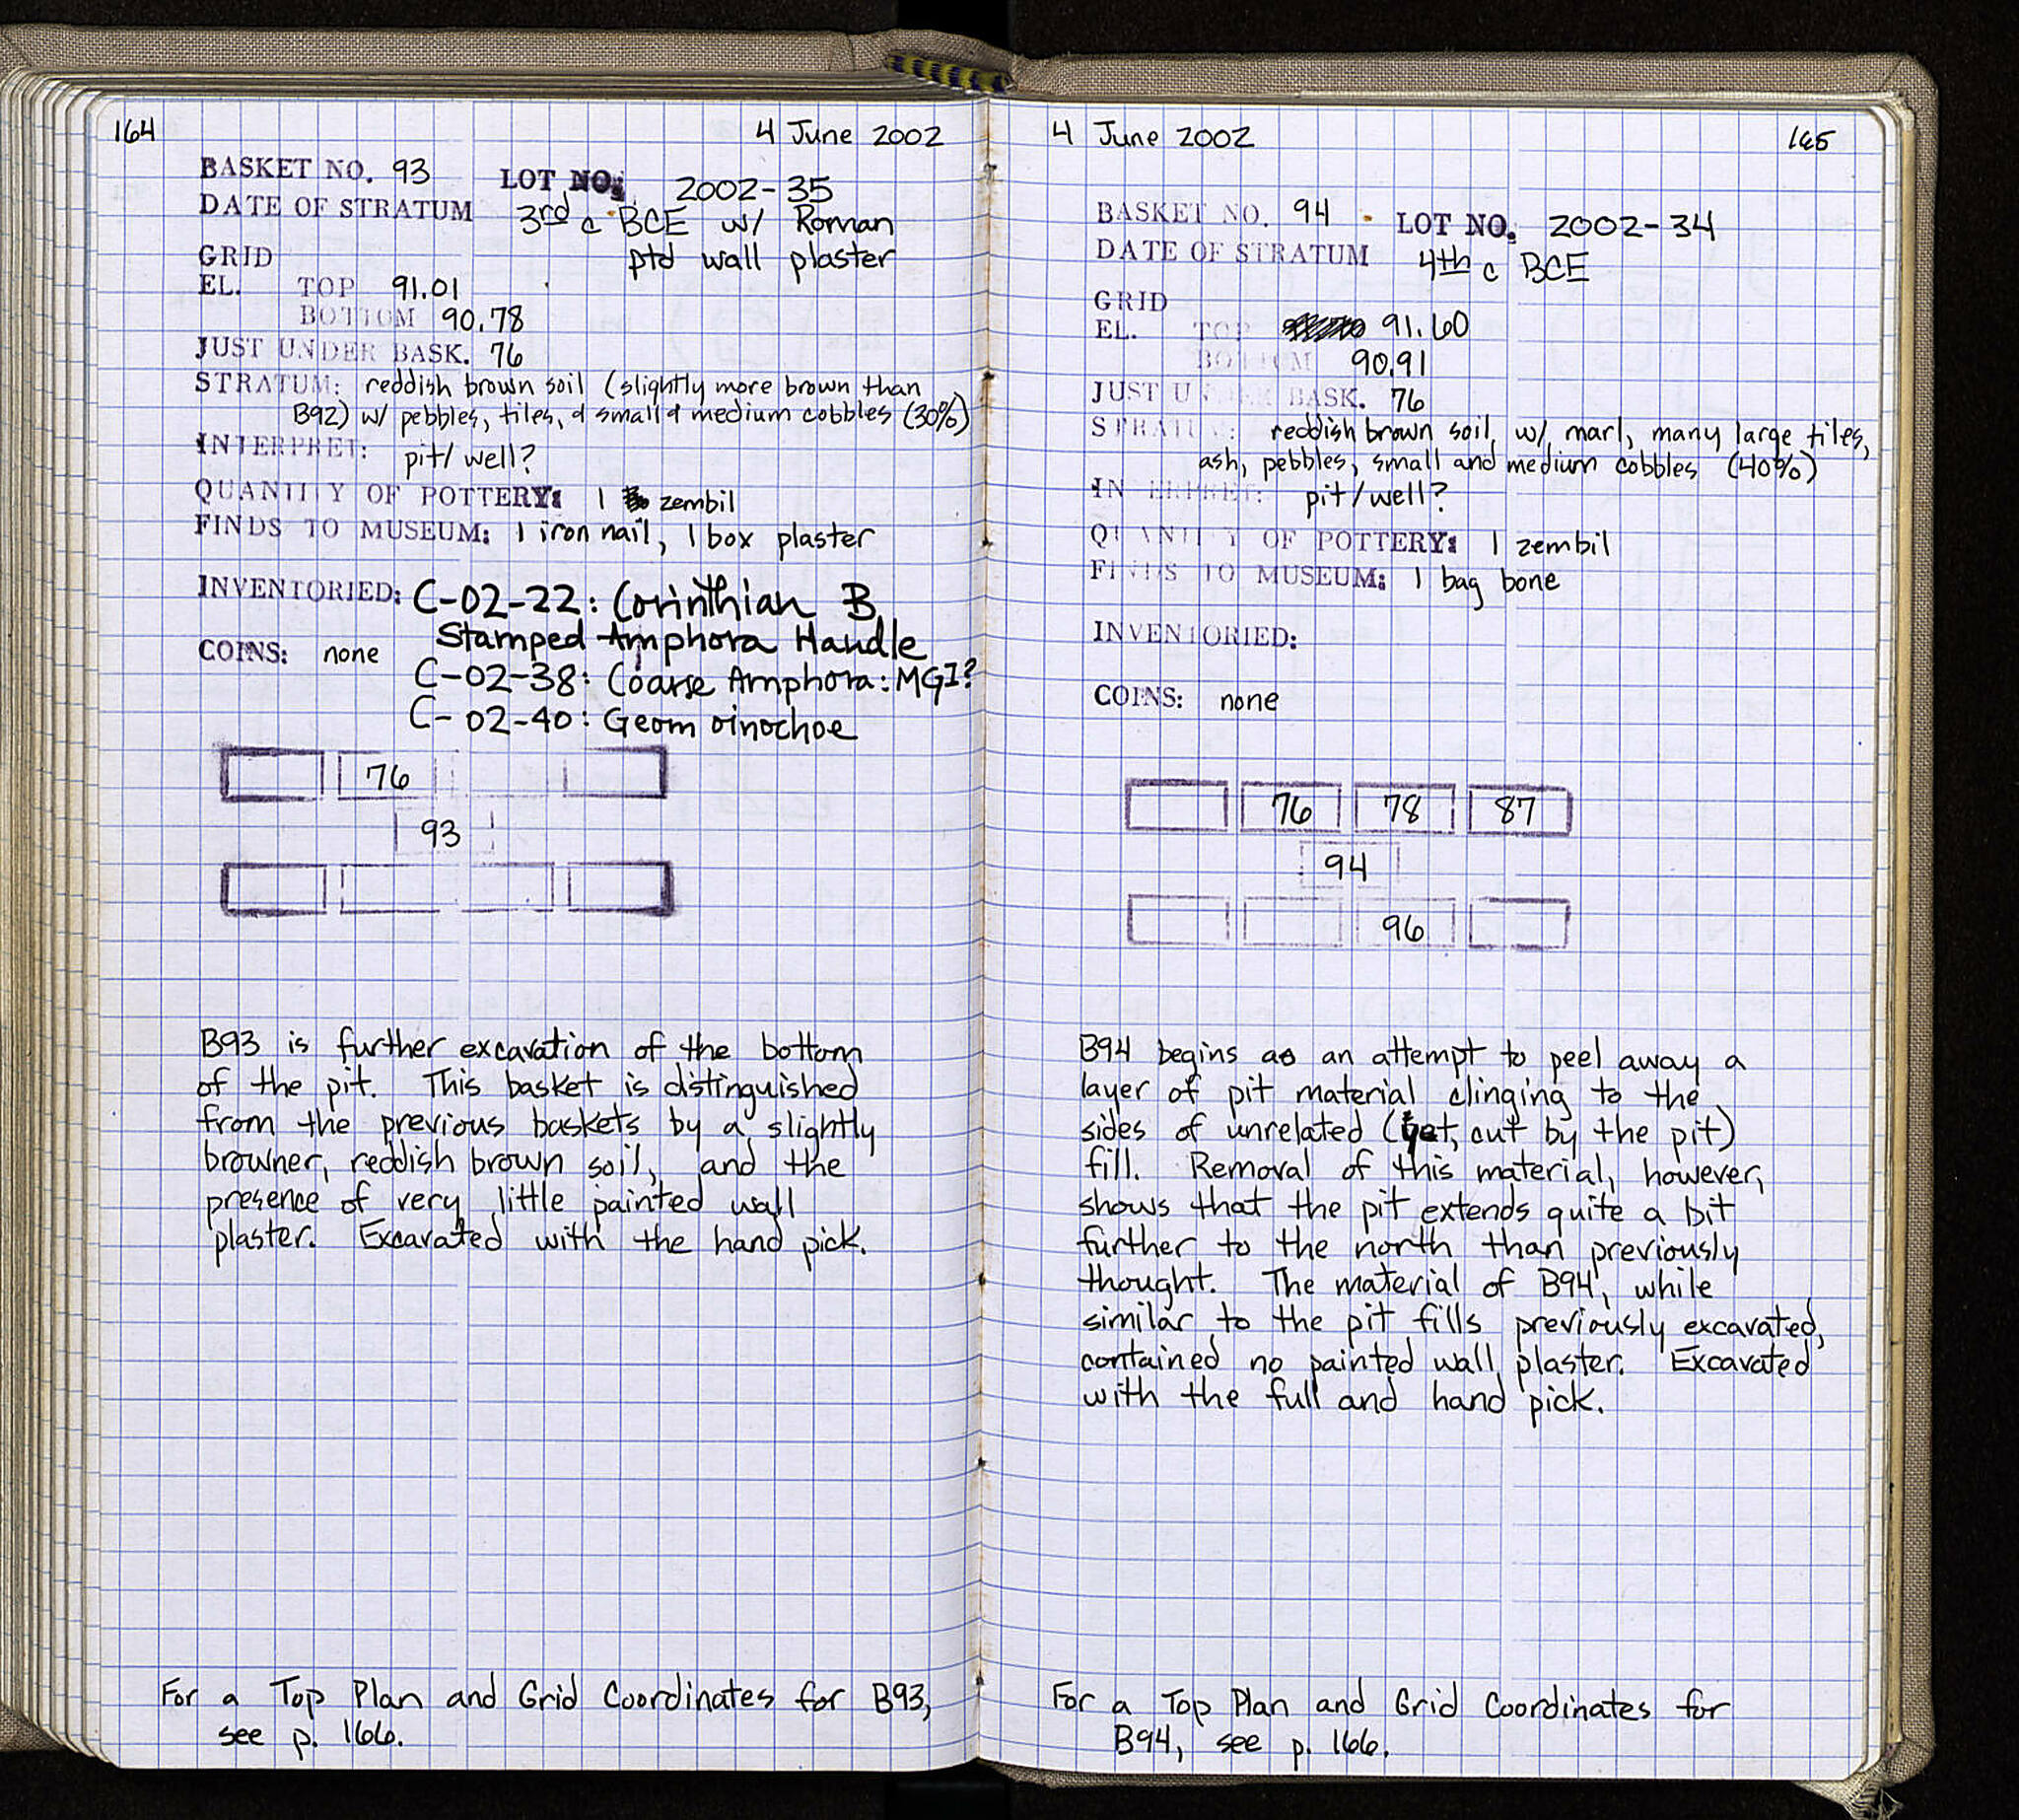 164
4 June 2002
BASKET NO. 93 LOT NO. 2002-35
DATE OF STRATUM 3rd c BCE w/ Roman
ptd wall plaster
GRID
EL. TOP 91.01
BOTTOM 90.78
JUST UNDER BASK. 76
STRATUM: reddish brown soil (slightly more brown than
B92) w/ pebbles, tiles, & small & medium cobbles (30%)
INTERPRET: pit/well?
QUANTITY OF POTTERY: 1 zembil
FINDS TO MUSEUM: 1 iron nail, 1 box plaster
INVENTORIED: C-02-22: Corinthian B
Stamped Amphora Handle
COINS: none
C-02-38: Coarse Amphora: MGI?
C-02-40: Geom oinochoe
76
93
B93 is further excavation of the bottom
of the pit. This basket is distinguished
from the previous baskets by a slightly
browner, reddish brown soil, and the
presence of very little painted wall
plaster. Excavated with the hand pick.
For a Top Plan and Grid Coordinates for B93,
see p. 166.
4 June 2002
165
BASKET NO. 94 LOT NO. 2002-34
DATE OF STRATUM 4th c BCE
GRID
EL. TOP 91.60
BOTTOM 90.91
JUST UNDER BASK. 76
STRATUM: reddish brown soil, w/ marl, many large tiles,
ash, pebbles, small and medium cobbles (40%)
INTERPRET: pit/well?
QUANTITY OF POTTERY: 1 zembil
FINDS TO MUSEUM: 1 bag bone
INVENTORIED:
COINS: none
76 78 87
94
96
B94 begins as an attempt to peel away a
layer of pit material clinging to the
sides of unrelated (yet, cut by the pit)
fill. Removal of this material, however,
shows that the pit extends quite a bit
further to the north than previously
thought. The material of B94, while
similar to the pit fills previously excavated,
contained no painted wall plaster. Excavated
with the full and hand pick.
For a Top Plan and Grid Coordinates for
B94, see p. 166.